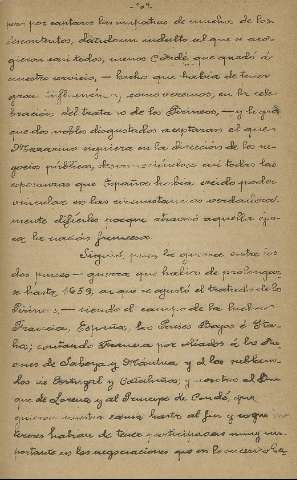 pero por captarse las simpatias de mucho de los
descontentos, dándo un indulto al que se aco-
gieron casi todos, menos Condé, que quedó á
nuestro servicio, — hecho que habia de tener
gran influencia, como veremos, en la cele-
bración del tratado de los Pirineos, — y logró
que los nobles disgustados aceptaran el que
Mazarino siguiera en la dirección de los ne-
gocios públicos, desvaneciéndose asi todas las
esperanzas que España habia creido poder
vincular en las circunstancias verdadera-
mente dificiles porque atravesó aquella épo-
ca la nación francesa.
Siguió, pues, la guerra entre los
dos paises — guerra que habia de prolongar
se hasta 1659, en que se ajustó el tratado de los
Pirineos, — siendo el campo de la lucha
Francia, España, los Paises Bajos é Ita-
lia; contando Francia por aliados á los Du-
ques de Saboya y Mántua y á los subleva-
dos de Portugal y Cataluña, y nosotros al Du
que de Lorena y al Principe de Condé, que
siguieron nuestra causa hasta el fin y cuyos in-
tereses habian de tener participacion muy im-
portante en las negociaciones que en lo sucesivo ha